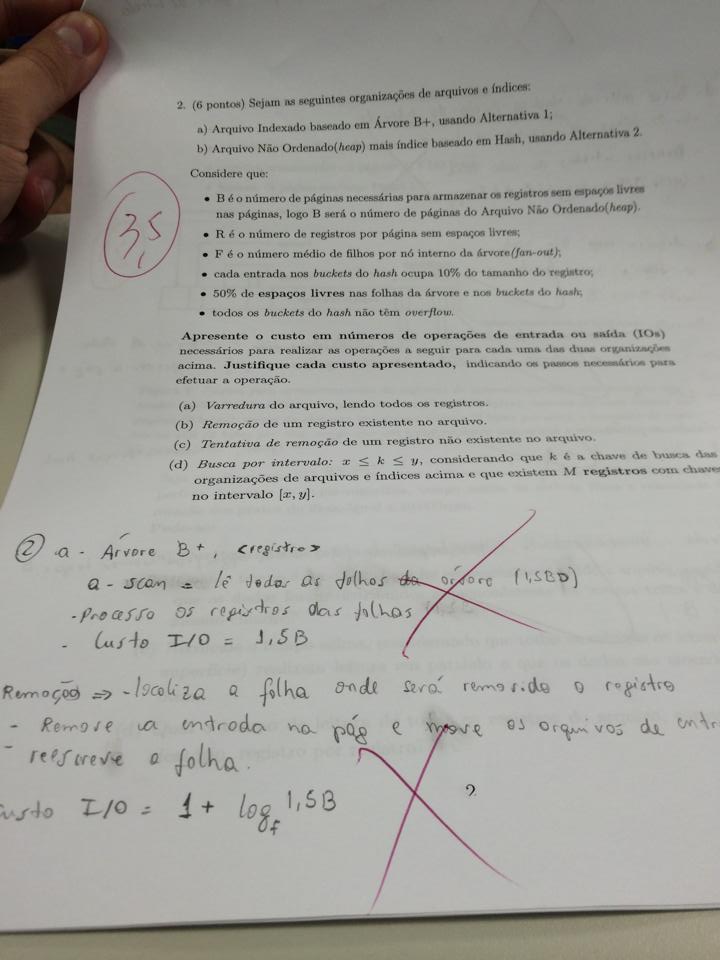 2. (6 pontos) Sejam as seguintes organizações de arquivos e índices:
a) Arquivo Indexado baseado em Árvore B+, usando Alternativa 1;
b) Arquivo Não Ordenado(heap) mais índice baseado em Hash, usando Alternativa 2.
Considere que:
• B é o número de páginas necessárias para armazenar os registros sem espaços livres
nas páginas, logo B será o número de páginas do Arquivo Não Ordenado(heap).
• R é o número de registros por página sem espaços livres;
• F é o número médio de filhos por nó interno da árvore(fan-out);
• cada entrada nos buckets do hash ocupa 10% do tamanho do registro;
• 50% de espaços livres nas folhas da árvore e nos buckets do hash;
• todos os buckets do hash não têm overflow.
3,5
Apresente o custo em números de operações de entrada ou saída (IOs)
necessários para realizar as operações a seguir para cada uma das duas organizações
acima. Justifique cada custo apresentado, indicando os passos necessários para
efetuar a operação.
(a) Varredura do arquivo, lendo todos os registros.
(b) Remoção de um registro existente no arquivo.
(c) Tentativa de remoção de um registro não existente no arquivo.
(d) Busca por intervalo: x ≤ k ≤ y, considerando que k é a chave de busca das
organizações de arquivos e índices acima e que existem M registros com chave
no intervalo [x, y].
2 a - Árvore B+, <registro>
a - scan = lê todas as folhas da árvore (1,5BD)
- Processo os registros das folhas
- Custo I/O = 1,5B
Remoção ⇒ - localiza a folha onde será removido o registro
- Remove a entrada na pág e move os arquivos de entr
- reescreve a folha.
usto I/O = 1 + log F 1,5B
2